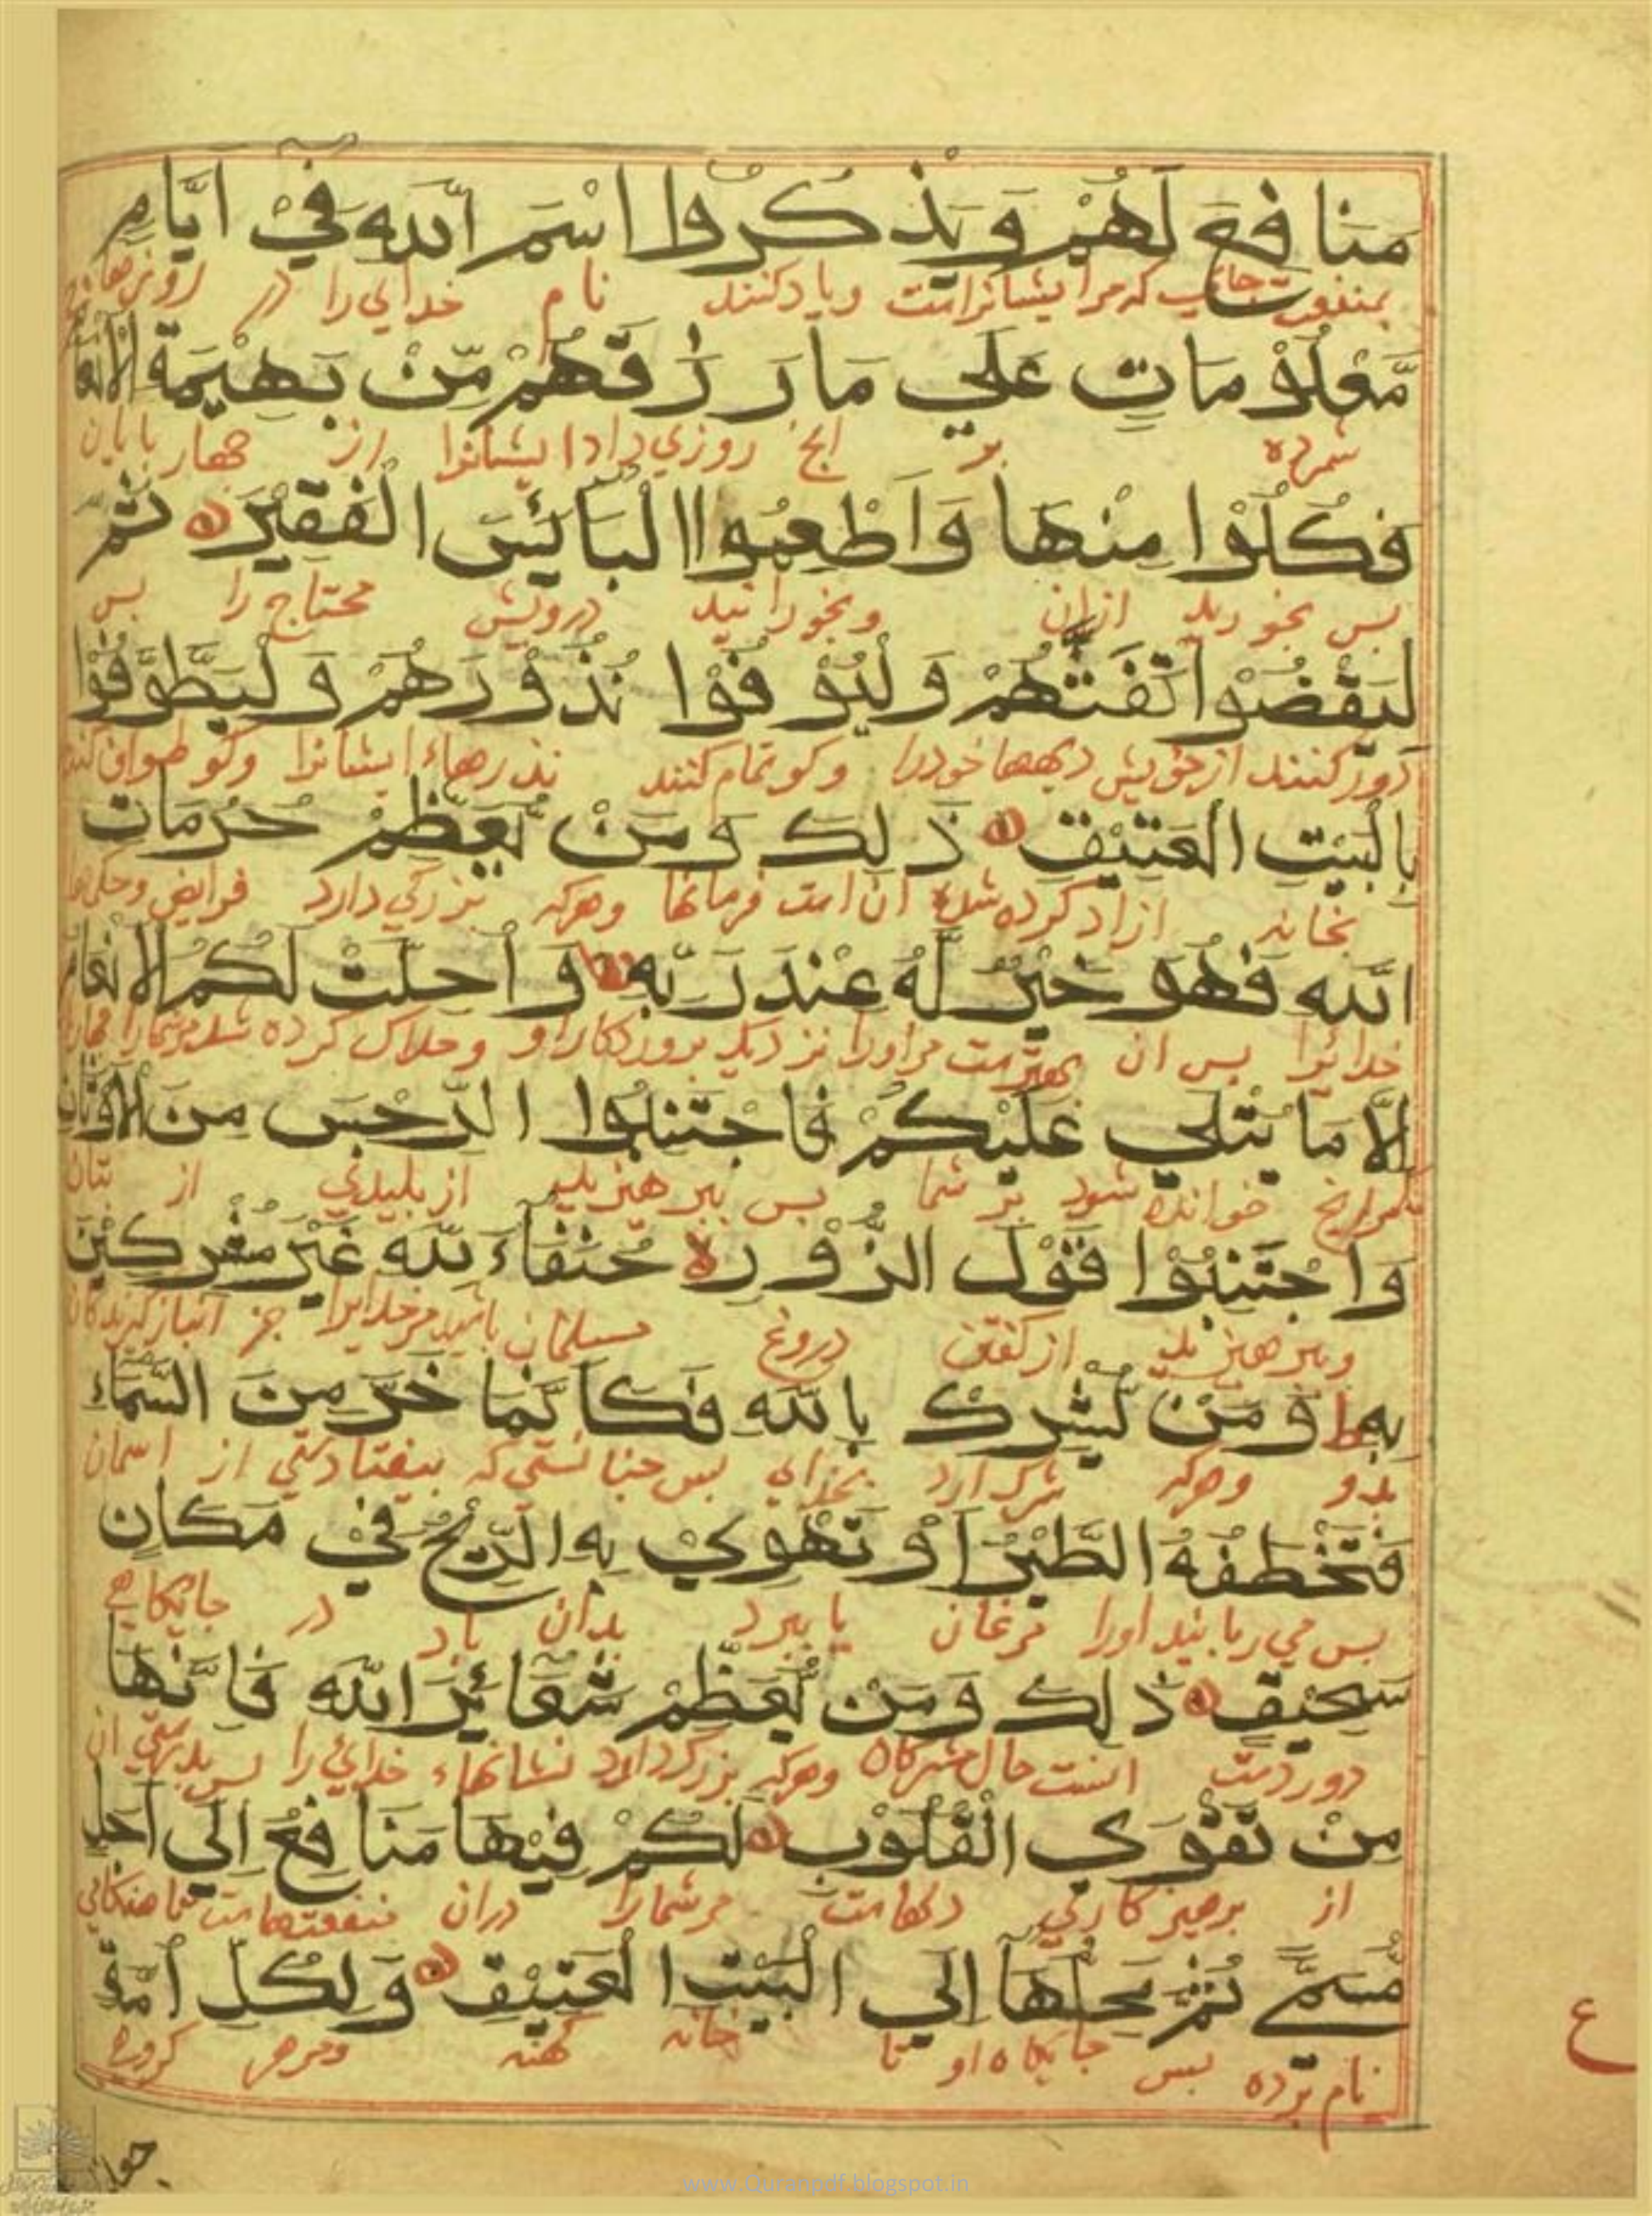 مَنَافِعَ لَهُمْ وَيَذْكُرُوا اسْمَ اللّٰهِ فِيْ اَيَّامٍ
بمنفعت كه مرايشانراست وياد كنند نام خدايي را در روزهاء
مَّعْلُوْمَاتٍ عَلٰي مَا رَزَقَهُمْ مِّنْ بَهِيْمَةِ الْاَنْعَامِ
شمرده بر انچ روزي داد ايشانرا از چهار پايان
فَكُلُوْا مِنْهَا وَاَطْعِمُوا الْبَائِسَ الْفَقِيْرَ ثُمَّ
بس بخوريد ازان وبخورانيد درويش محتاج را بس
لْيَقْضُوْا تَفَثَهُمْ وَلْيُوْفُوْا نُذُوْرَهُمْ وَلْيَطَّوَّفُوْا
دور كنند از خويش خودرا وكو تمام كنند نذرهاء ايشانرا وكو طواف كنند
بِالْبَيْتِ الْعَتِيْقِ ذٰلِكَ وَمَنْ يُّعَظِّمْ حُرُمَاتِ
بخانه ازاد كرده شده ان است فرمانها وهركه بزركي دارد فرايض وحكمها
اللّٰهِ فَهُوَ خَيْرٌ لَّهُ عِنْدَ رَبِّهِ وَاُحِلَّتْ لَكُمُ الْاَنْعَامُ
خدائرا بس ان بهترست مراورا نزديك بروردكار او وحلال كرده شد مرشمارا چهارپا
اِلَّا مَا يُتْلٰي عَلَيْكُمْ فَاجْتَنِبُوا الرِّجْسَ مِنَ الْاَوْثَانِ
مكر انچ خوانده شود بر شما بس ببرهيزيد از بليدي از بتان
وَاجْتَنِبُوْا قَوْلَ الزُّوْرِ حُنَفَاءَ لِلّٰهِ غَيْرَ مُشْرِكِيْنَ
وببرهيزيد از كفتن دروغ مسلمان باشيد مر خدايرا جز انباز كيرندكان
بِهِ ط وَمَنْ يُّشْرِكْ بِاللّٰهِ فَكَاَنَّمَا خَرَّ مِنَ السَّمَاءِ
بدو وهركه شرك ارد بخداي بس چنانستي كه بيفتادستي از اسمان
فَتَخْطَفُهُ الطَّيْرُ اَوْ تَهْوِيْ بِهِ الرِّيْحُ فِيْ مَكَانٍ
بس مي ربايد اورا مرغان يا ببرد بدان باد در جايكاهي
سَحِيْقٍ ذٰلِكَ وَمَنْ يُّعَظِّمْ شَعَائِرَ اللّٰهِ فَاِنَّهَا
دوردست اينست حال مشركان وهركه بزرك دارد نشانهاء خدائي را بس بدرستي ان
مِنْ تَقْوَي الْقُلُوْبِ لَكُمْ فِيْهَا مَنَافِعُ اِلٰي اَجَلٍ
از برهيزكاري دلهاست مرشمارا دران منفعتهاست تا هنكامي
مُّسَمًّي ثُمَّ مَحِلُّهَا اِلَي الْبَيْتِ الْعَتِيْقِ وَلِكُلِّ اُمَّةٍ
نام برده بس جايكاه او تا خانه كهنه ومرهر كروهي
ع
جعلنا
www.Quranpdf.blogspot.in